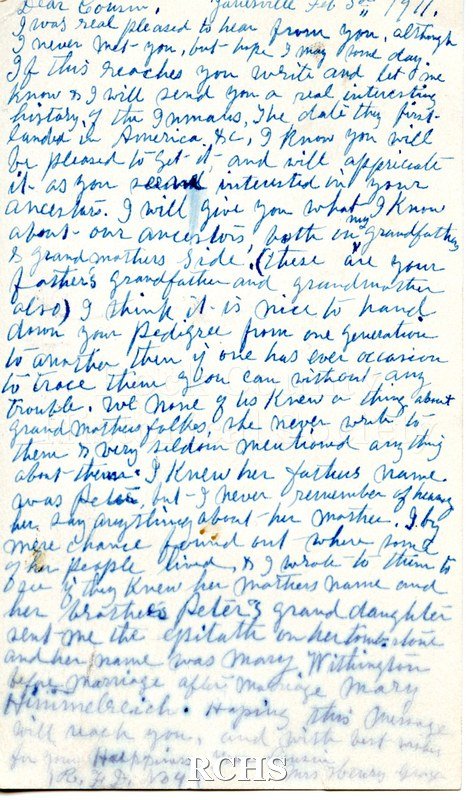 Dear Cousin, Janesville Feb 3rd 1911.
I was real pleased to hear from you, although
I never met you, but hope I may some day.
If this reaches you write and let me
know & I will send you a real interesting
history of the Inmans, The date they first
landed in America, &c, I know you will
be pleased to get it, and will appriciate
it as you seemd interested in your
ancestors. I will give you what I know
about our ancestors, both in my grandfathers
& grandmothers side. (These are your
Father's grandfather and grandmother
also) I think it is nice to hand
down your pedigree from one generation
to another then if one has ever occasion
to trace them you can without any
trouble. We none of us knew a thing about
grandmothers folkes, she never write to
them & very seldom mentioned anything
about them. I knew her fathers name
was Peter but I never remember of hearing
her say anything about her mother. I by
mere chance found out where some
of her people lived, & I wrote to them to
see if they knew her mothers name and
her brothers Peter's grand daughter
sent me the epitath on her tombstone
and her name was Mary Withington
before marriage after marriage Mary
Himmelreich. Hoping this message
will reach you, and with best wishes
for your Happiness your Cousin
R.F.D. No 4 Mrs Henry
RCHS